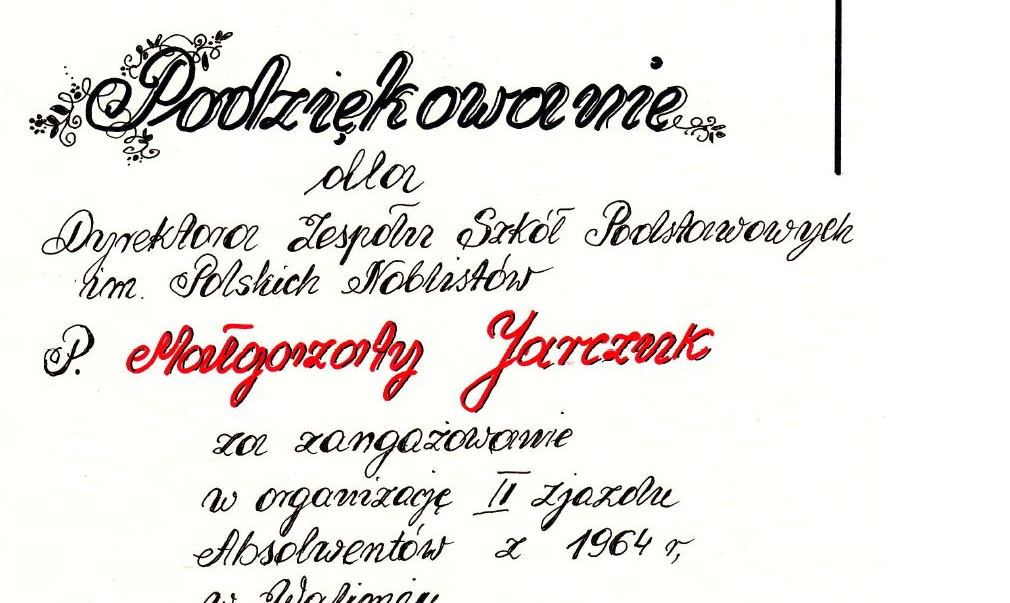 Podziękowanie
dla
Dyrektora Zespołu Szkół Podstawowych
im. Polskich Noblistów
P. Małgorzaty Jarczuk
za zangażowanie
w organizację II zjazdu
Absolwentów z 1964 r,
w